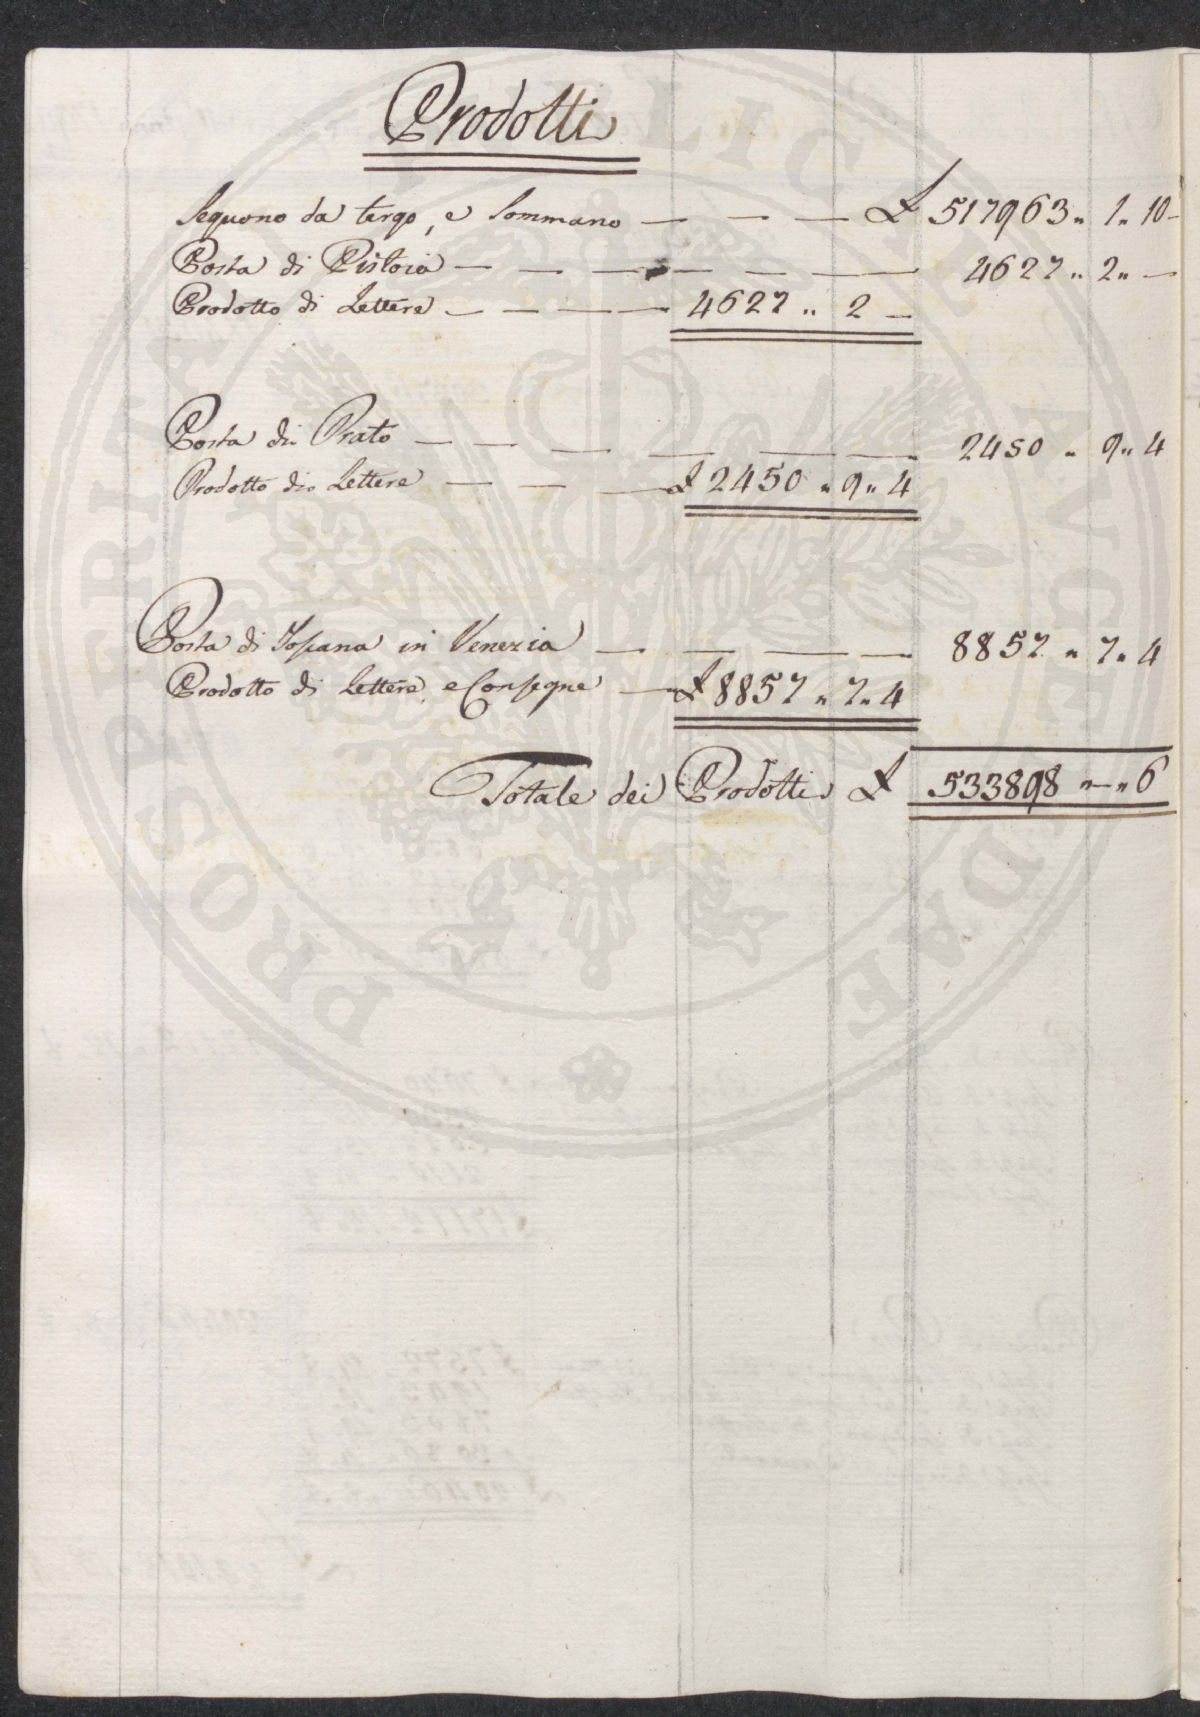 Prodotti
Seguono da tergo, e Sommano — — — £ 517963 " 1 " 10 —
Posta di Pistoia — — — — — — — 4627 " 2 " —
Prodotto di Lettere — — — — 4627 " 2 —
Posta di Prato — — — — — — 2450 " 9 " 4
Prodotto di Lettere — — — £ 2450 " 9 " 4
Posta di Toscana in Venezia — — — — 8857 " 7 " 4
Prodotto di Lettere, e Consegne — £ 8857 " 7 " 4
Totale dei Prodotti £ 533898 " — " 6